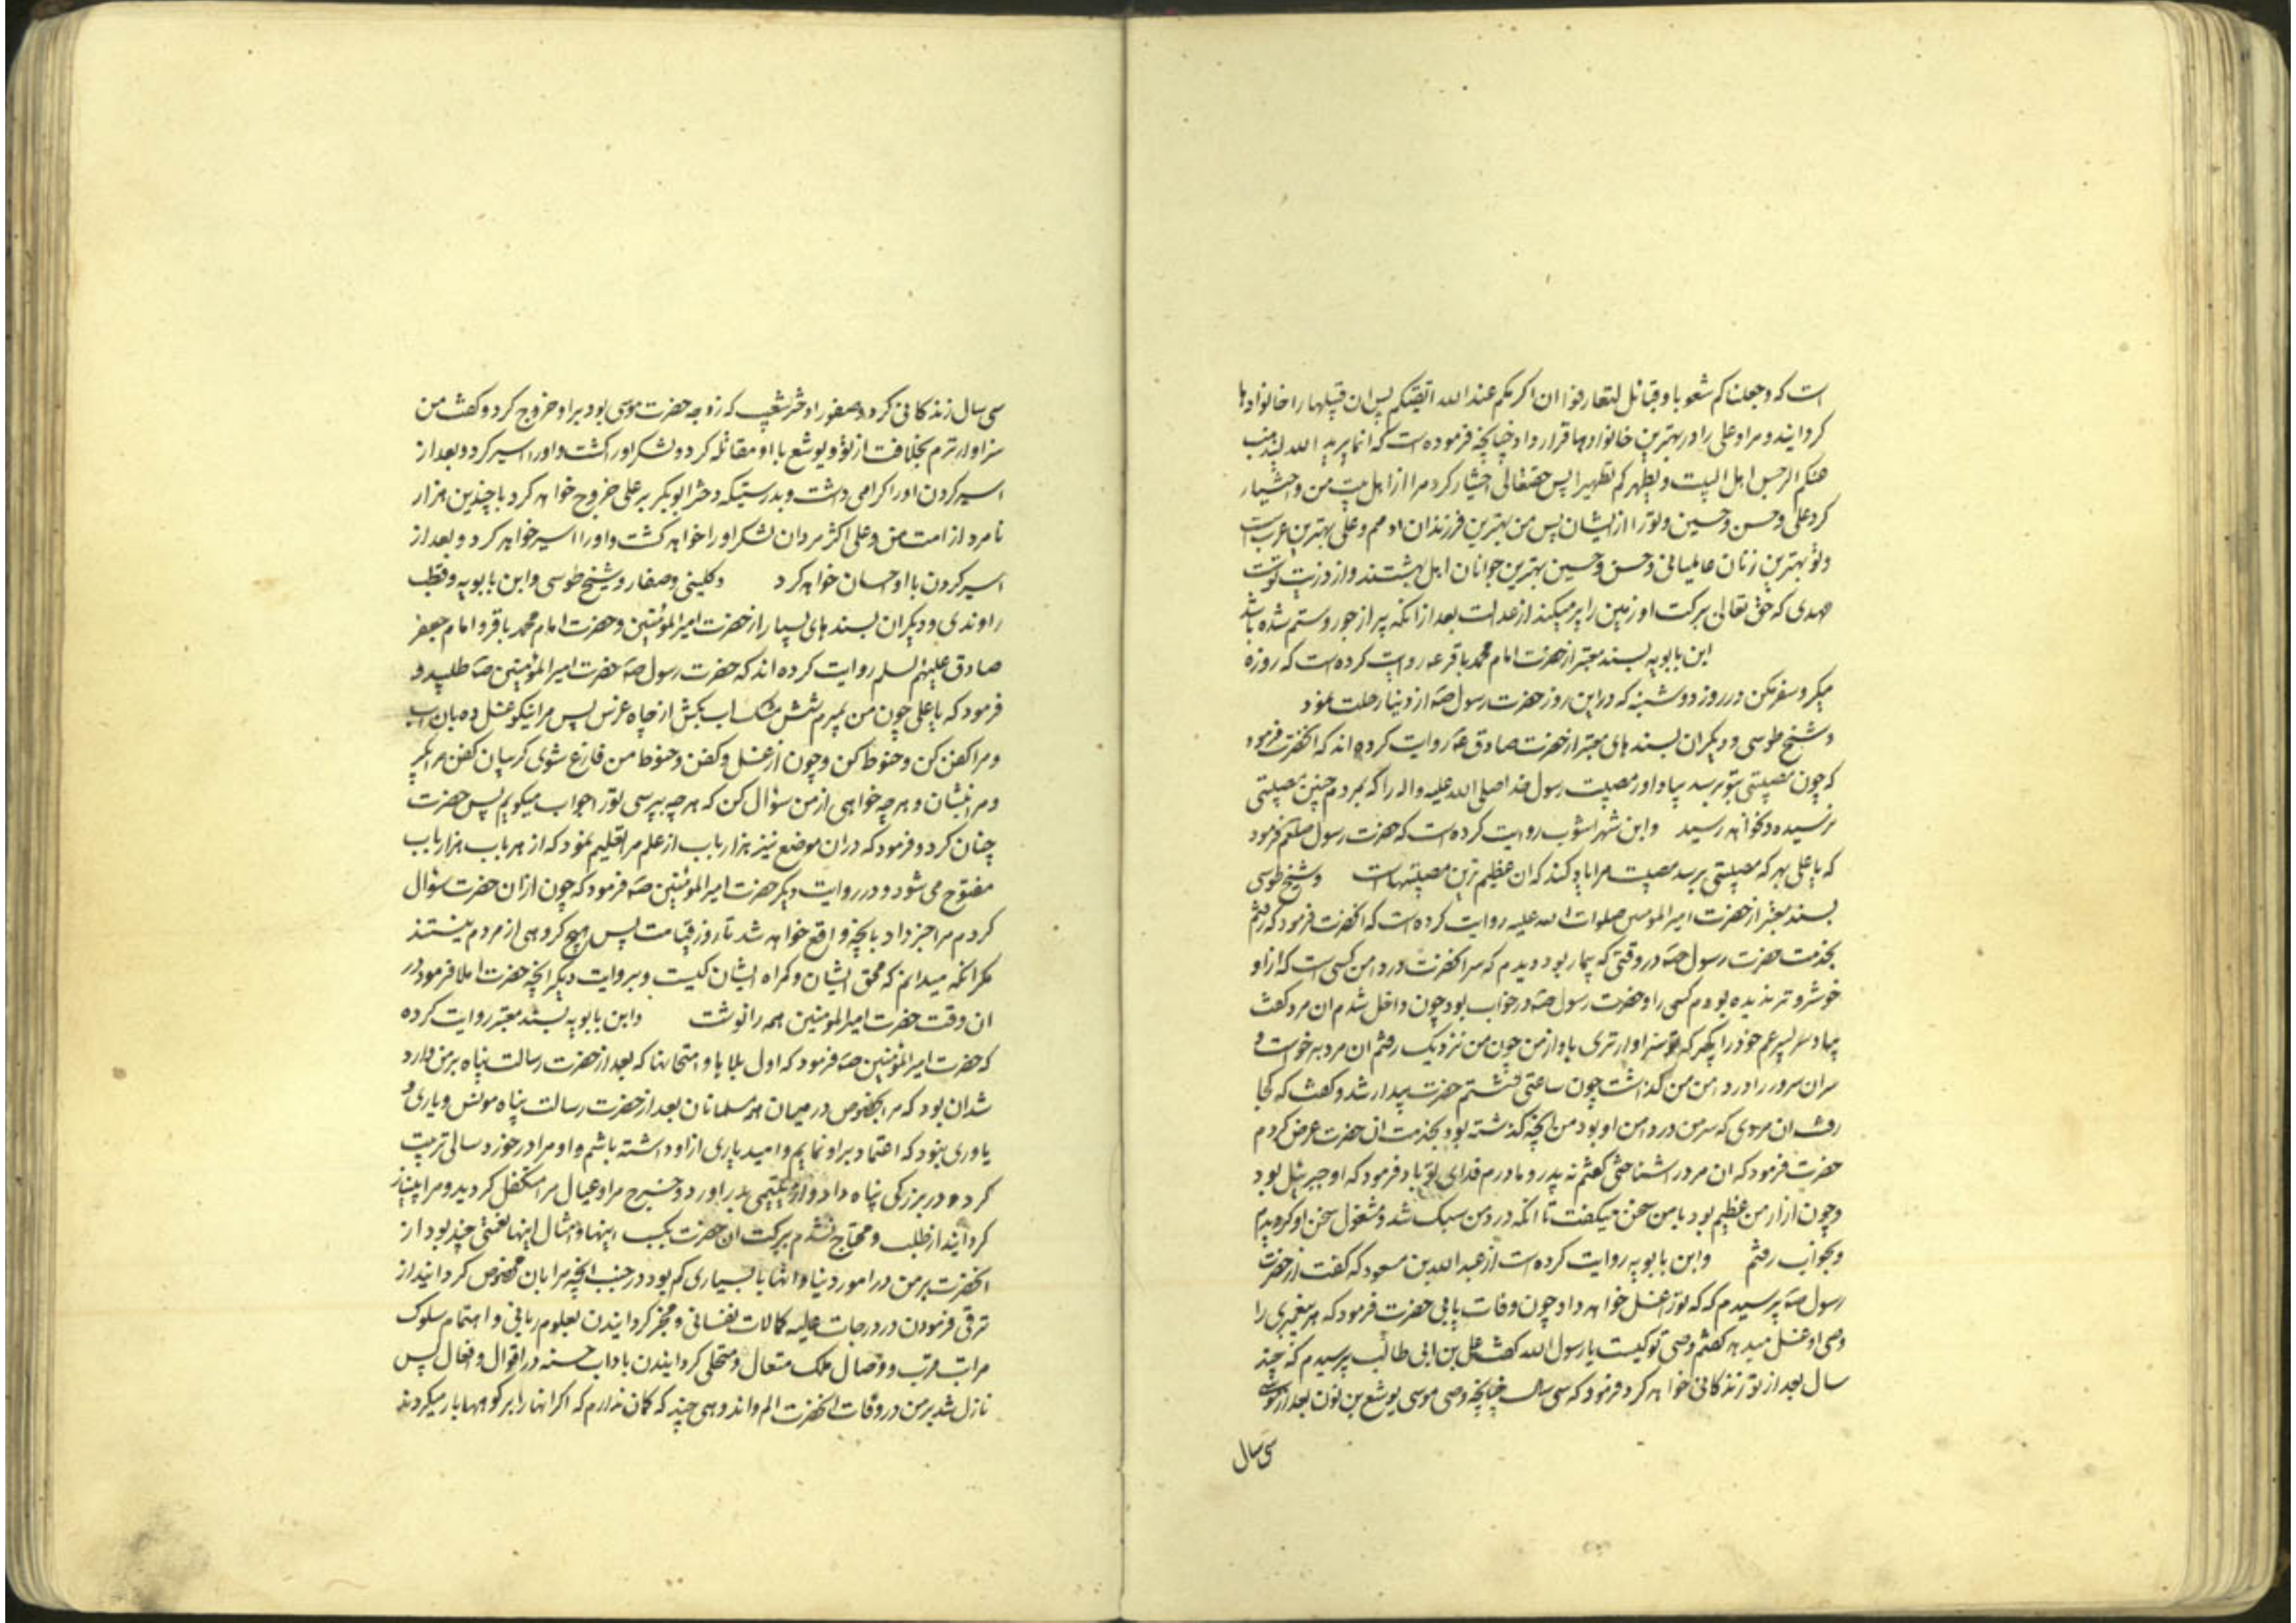 است که وجعلناکم شعوبا وقبائل لتعارفوا ان اکرمکم عند الله اتقیکم پس ان قبیلها را خانوادها
کردانیند و مرا و علی را در بهترین خانوادها قرار داد چنانچه فرموده است که انما یرید الله لیذهب
عنکم الرجس اهل البیت ویطهرکم تطهیرا پس حقتعالی اختیار کرد مرا از اهل بیت من و اختیار
کرد علی و حسن و حسین و تو را از ایشان پس من بهترین فرزندان ادمم و علی بهترین عرب است
و تو بهترین زنان عالمیانی و حسن و حسین بهترین جوانان اهل بهشتند و از ذریت توست
مهدی که حق تعالی ببرکت او زمین را پر میکند از عدالت بعد از انکه پر از جور و ستم شده باشد
ابن بابویه بسند معتبر از حضرت امام محمد باقر ع روایت کرده است که روزه
میکر و سفر مکن در روز دوشنبه که در این روز حضرت رسول صه از دنیا رحلت نمود
و شیخ طوسی و دیکران بسند های معتبر از حضرت صادق عه روایت کرده اند که انحضرت فرمود
که چون مصیبتی بتو برسد بیاد اور مصیبت رسول خدا صلی الله علیه واله را که بمردم چنین مصیبتی
نرسیده و نخواهد رسید و ابن شهر اشوب روایت کرده است که حضرت رسول صلعم فرمود
که یا علی بهر که مصیبتی برسد مصیبت مرا یاد کند که ان عظیم ترین مصیبتهاست و شیخ طوسی
بسند معتبر از حضرت امیر المومنین صلوات الله علیه روایت کرده است که انحضرت فرمود که رفتم
بخدمت حضرت رسول صه در وقتی که بیمار بود دیدم که سر انحضرت در دامن کسی است که از او
خوشرو تر ندیده بودم کسی را و حضرت رسول صه در خواب بود چون داخل شدم ان مرد کفت
بیا و سر پسر عم خود را بکیر که تو سزاوارتری باو از من چون من نزدیک رفتم ان مرد برخواست و
سر ان سرور را در دامن من کذاشت چون ساعتی نشستم حضرت بیدار شد و کفت که کجا
رفت ان مردی که سر من در دامن او بود من انچه کذشته بود بخدمت ان حضرت عرض کردم
حضرت فرمود که ان مرد را شناختی کفتم نه پدر و مادرم فدای تو باد فرمود که او جبرئیل بود
و چون ازار من عظیم بود با من سخن میکفت تا انکه درد من سبک شد و مشغول سخن او کردیدم
و بخواب رفتم و ابن بابویه روایت کرده است از عبد الله بن مسعود که کفت از حضرت
رسول صه پرسیدم که که تو را غسل خواهد داد چون وفات یابی حضرت فرمود که هر پیغمبری را
وصی او غسل میدهد کفتم وصی تو کیست یا رسول الله کفت علی بن ابی طالب پرسیدم که چند
سال بعد از تو زندکانی خواهد کرد فرمود که سی سال چنانچه وصی موسی یوشع بن نون بعد از موسی
سی سال
سی سال زندکانی کرد و صفورا دختر شعیب که زوجه حضرت موسی بود بر او خروج کرد و کفت من
سزاوارترم بخلافت از تو و یوشع با او مقاتله کرد و لشکر او را کشت و او را اسیر کرد و بعد از
اسیر کردن او را کرامی داشت و بدرستیکه دختر ابوبکر بر علی خروج خواهد کرد با چندین هزار
نامرد از امت من و علی اکثر مردان لشکر او را خواهد کشت و او را اسیر خواهد کرد و بعد از
اسیر کردن با او احسان خواهد کرد و کلینی و صفار و شیخ طوسی و ابن بابویه و قطب
راوندی و دیکران بسند های بسیار از حضرت امیر المؤمنین و حضرت امام محمد باقر و امام جعفر
صادق علیهم السلم روایت کرده اند که حضرت رسول صه حضرت امیر المؤمنین صه طلبید و
فرمود که یا علی چون من بمیرم شش مشک اب بکش از چاه غرس پس مرا نیکو غسل ده بان اب
و مرا کفن کن و حنوط کن و چون از غسل و کفن و حنوط من فارغ شوی کریبان کفن مرا بکیر
و مرا بنشان و هر چه خواهی از من سؤال کن که هر چه بپرسی تو را جواب میکویم پس حضرت
چنان کرد و فرمود که در ان موضع نیز هزار باب از علم مرا تعلیم نمود که از هر باب هزار باب
مفتوح می شود و در روایت دیکر حضرت امیر المؤمنین صه فرمود که چون از ان حضرت سؤال
کردم مرا خبر داد بانچه واقع خواهد شد تا روز قیامت پس هیچ کروهی از مردم نیستند
مکر انکه میدانم که محق ایشان و کمراه ایشان کیست و بروایت دیکر انچه حضرت املا فرمود در
ان وقت حضرت امیر المومنین همه را نوشت و ابن بابویه بسند معتبر روایت کرده
که حضرت امیر المؤمنین صه فرمود که اول بلایا و امتحانها که بعد از حضرت رسالت پناه بر من وارد
شد ان بود که مرا بخصوص در میان همه مسلمانان بعد از حضرت رسالت پناه مونس و یاری و
یاوری نبود که اعتماد بر او نمایم و امید یاری از او داشته باشم و او مرا در خورد سالی تربیت
کرده و در بزرکی پناه داد و از یتیمی بدر اورد و خرج مرا و عیال مرا متکفل کردید و مرا بینیاز
کردانید از طلب و محتاج نشدم ببرکت ان حضرت بکسب اینها و امثال اینها نعمتی چند بود از
انحضرت بر من در امور دنیا و انها با بسیاری کم بود در جنب انچه مرا بان مخصوص کردانید از
ترقی فرمودن در درجات عالیه کمالات نفسانی و مفخر کردانیدن بعلوم ربانی و اهتمام سلوک
مراتب قرب و وصال ملک متعال و متحلی کردانیدن باداب حسنه در اقوال و افعال پس
نازل شد بر من در وفات انحضرت الم و اندوهی چند که کمان ندارم که اکر انها را بر کوهها بار میکردند